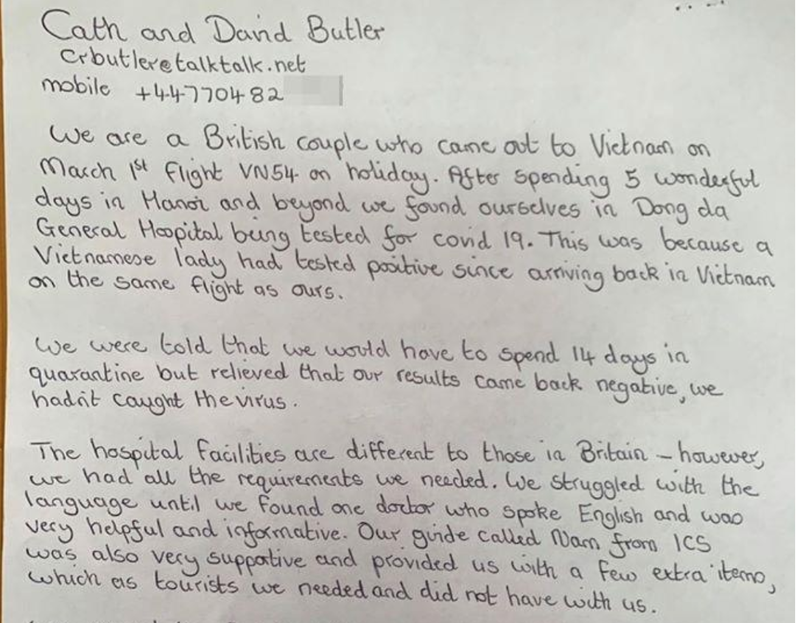 Cath and David Butler
crbutler@talktalk.net
mobile +44770482
We are a British couple who came out to Vietnam on
March 1st flight VN54 on holiday. After spending 5 wonderful
days in Hanoi and beyond we found ourselves in Dong da
General Hospital being tested for covid 19. This was because a
Vietnamese lady had tested positive since arriving back in Vietnam
on the same flight as ours.
We were told that we would have to spend 14 days in
quarantine but relieved that our results came back negative, we
hadn't caught the virus.
The hospital facilities are different to those in Britain – however,
we had all the requirements we needed. We struggled with the
language until we found one doctor who spoke English and was
very helpful and informative. Our guide called Nam from ICS
was also very supportive and provided us with a few extra items,
which as tourists we needed and did not have with us.